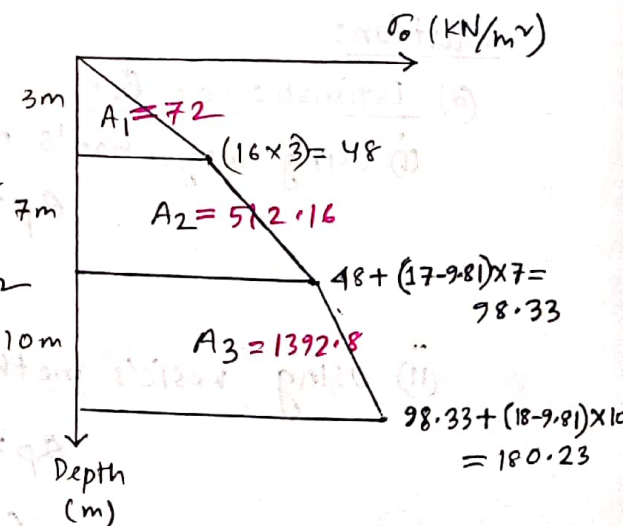 σ₀ (KN/m²)
3m
A₁ = 72
(16 × 3) = 48
7m
A₂ = 512.16
48 + (17-9.81)×7 =
98.33
10m
A₃ = 1392.8
98.33 + (18-9.81)×10
= 180.23
Depth
(m)